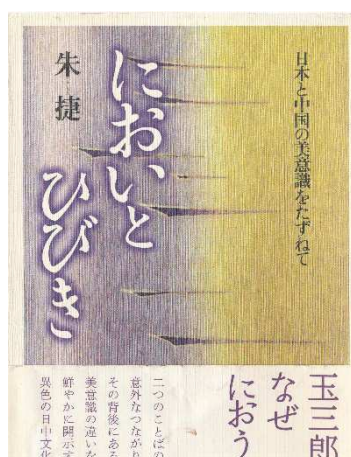 日本と中国の美意識をたずねて
におい と
ひびき
朱 捷
玉三郎
なぜ
におう
二つのことばの
意外なつながり
その背後にある
美意識の違いを
鮮やかに開示す
異色の日中文化